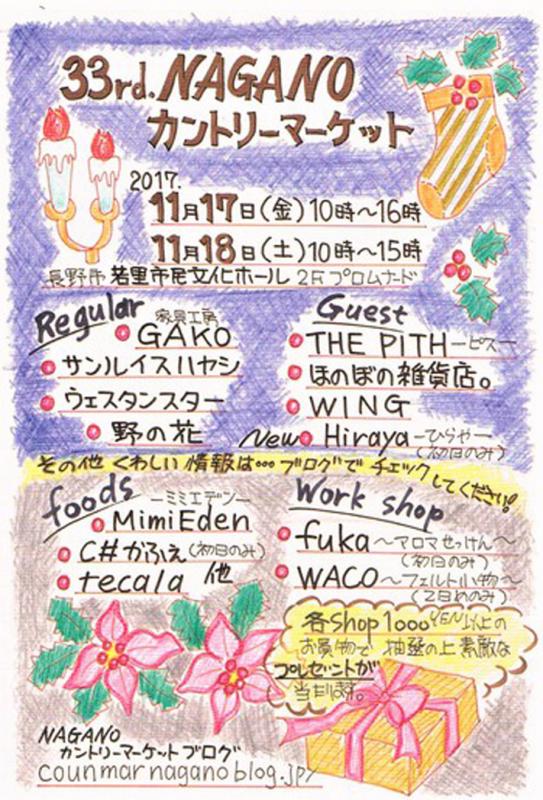 33rd. NAGANO
カントリーマーケット
2017.
11月17日(金)10時~16時
11月18日(土)10時~15時
長野市 若里市民文化ホール 2F プロムナード
Regular
家具工房
GAKO
サンルイスハヤシ
ウェスタンスター
野の花
Guest
THE PITH ーピスー
ほのぼの雑貨店。
WING
New Hiraya ーひらやー
(初日のみ)
その他 くわしい 情報は… ブログで チェックしてください!
foods
ーミミエデンー
MimiEden
C#かふぇ(初日のみ)
tecala 他
Work shop
fuka ~アロマせっけん~
(初日のみ)
WACO ~フェルト小物~
(2日めのみ)
各shop 1000YEN以上の
お買物で 抽選の上 素敵な
プレゼントが
当たります。
NAGANO
カントリーマーケットブログ
counmar naganoblog.jp/